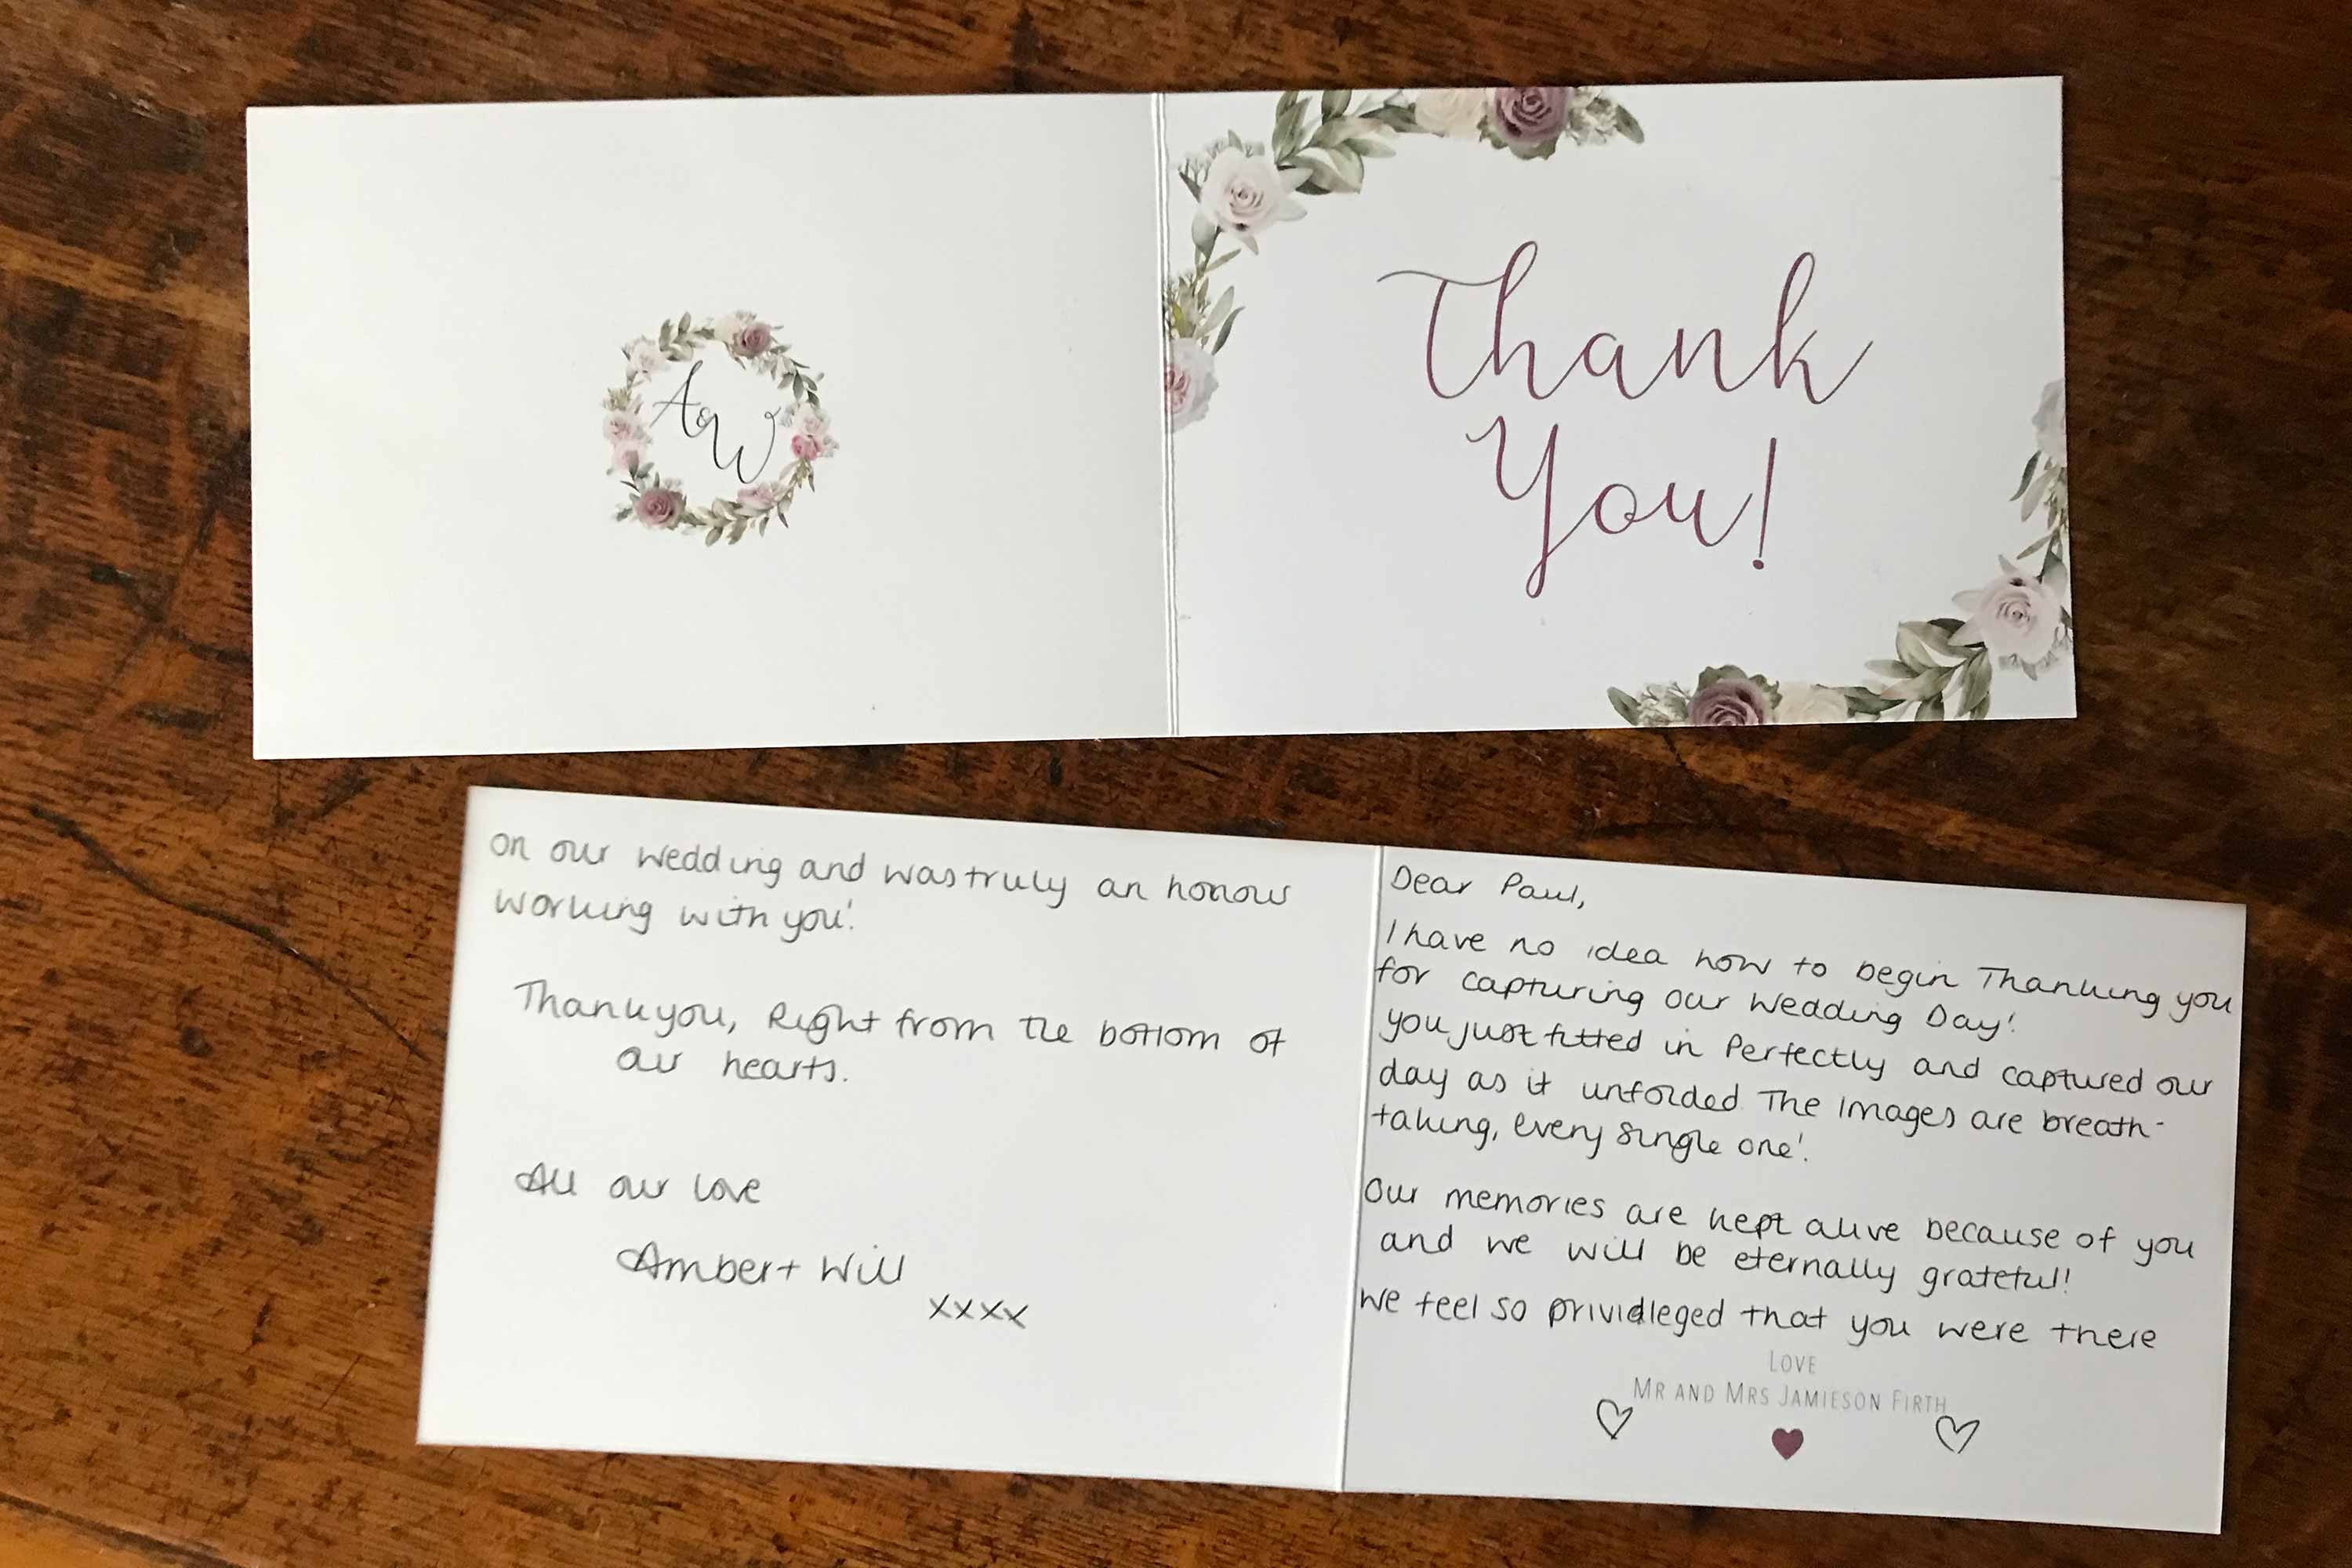 A&W
Thank
You!
Dear Paul,
I have no idea how to begin Thanking you
for capturing our Wedding Day!
you just fitted in Perfectly and captured our
day as it unfolded. The images are breath-
taking, every single one!
Our memories are kept alive because of you
and we will be eternally grateful!
We feel so prividleged that you were there
LOVE
MR AND MRS JAMIESON FIRTH
on our wedding and was truly an honour
working with you!
Thankyou, Right from the bottom of
our hearts.
All our love
Amber + Will
xxxx